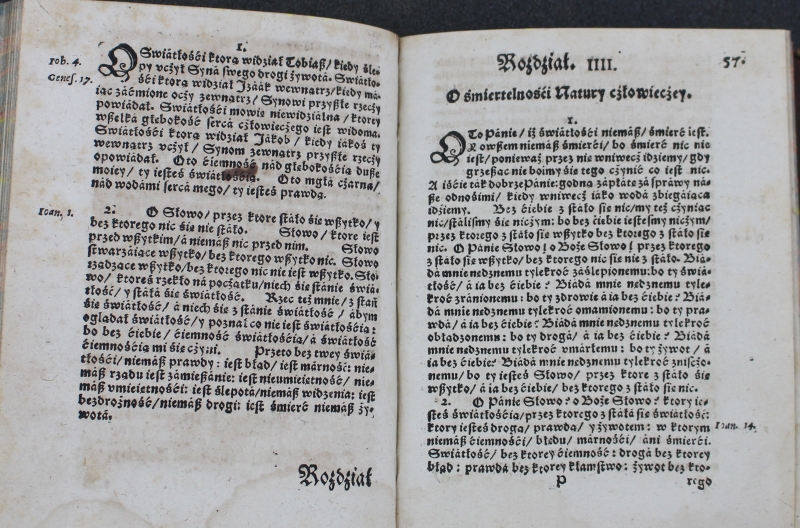 1.
Iob. 4.
Genes. 17.
O Swiátłośći ktorą widział Tobiasz/ kiedy śle-
py vczył Syná swego drogi żywotá. Swiátło-
śći ktorą widział Izáák wewnatrz/ kiedy má-
iąc záćmione oczy zewnątrz/ Synowi przyszłe rzeczy
powiádał. Swiátłośći mowie niewidzialna/ ktorey
wszelka głebokość sercá człowieczego iest widoma.
Swiátłośći ktorą widział Jákob/ kiedy iákoś ty
wewnątrz vczył/ Synom zewnątrz przyszłe rzeczy
opowiádał. Oto ćiemność nád głebokośćią dusze
moiey/ ty iesteś świátłośćią. Oto mgłá czarna/
nád wodámi sercá mego/ ty iesteś prawdą.
Ioan. 1.
2. O Słowo/ przez ktore sstáło śie wszytko/ y
bez ktorego nic śie nie sstáło. Słowo/ ktore iest
przed wszytkim/ á niemász nic przed nim. Słowo
stwarzáiące wszytko/ bez ktorego wszytko nic. Słowo
rządzące wszytko/ bez ktorego nic nie iest wszytko. Sło-
wo/ ktoreś rzekło ná początku/ niech śie stánie świá-
tłość/ y sstáłá śie świátłość. Rzec też mnie/ z stań
śie świátłość/ á niech śie z stánie świátłość/ ábym
oglądał świátłość/ y poznał co nie iest świátłośćią:
bo bez ćiebie/ ćiemność świátłośćią/ á świátłość
ćiemnośćią mi śie czyni. Przeto bez twey świá-
tłośći/ niemász prawdy: iest błąd/ iest márność: nie-
mász rządu iest zámieszánie: iest nieumieietność/ nie-
mász vmieietnośći: iest ślepotá/ niemász widzenia: iest
bezdrożność/ niemász drogi: iest śmierć niemász ży-
wotá.
Rozdział
Rozdział. IIII. 57.
O śmiertelnośći Natury człowieczey.
1.
OTo Pánie/ iż świátłośći niemász/ śmierć iest.
Y owszem niemász śmierći/ bo śmierć nic nie
iest/ ponieważ przez nie wniwecz idziemy/ gdy
grzesząc nie boimy śie tego czynić co iest nic.
A iśćie ták dobrze Pánie: godną zapłátę zá spráwy ná-
sze odnośimi/ kiedy wniwecz iáko wodá zbiegáiąca
idziemy. Bez ćiebie z stáło śie nic/ my też czyniąc
nic/ stáliśmy śie niczym: bo bez ćiebie iestesmy niczym/
przez ktorego z stáło śie wszytko bez ktorego z stáło śie
nic. O Pánie Słowo! o Boże Słowo! przez ktorego
z stáło śie wszytko/ bez ktorego nic śie nie z stáło. Biá-
dá mnie nedznemu tylekroć záślepionemu: bo ty świá-
tłość/ á ia bez ćiebie? Biádá mnie nedznemu tyle-
kroć zránionemu: bo ty zdrowie á ia bez ćiebie? Biádá
mnie nedznemu tylekroć omamionemu: bo ty pra-
wdá/ á ia bez ćiebie? Biádá mnie nedznemu tylekroć
obłądzonemu: bo ty drogá/ á ia bez ćiebie? Biádá
mnie nedznemu tylekroć vmárłemu: bo ty żywot/ á
ia bez ćiebie: Biádá mnie nedznemu tylekroć zniszczo-
nemu/ bo ty iesteś Słowo/ przez ktore z stáło śie
wszytko/ á ia bez ćiebie/ bez ktorego z stáło śie nic.
2. O Pánie Słowo? o Boże Słowo? ktory ie-
steś świátłośćią/ przez ktorego z stáłá śie świátłość:
ktory iesteś drogą/ prawdą/ y żywotem: w ktorym
niemász ćiemnośći/ błedu/ márnośći/ áni śmierći.
Ioan. 14.
Swiátłość/ bez ktorey ćiemność: drogá bez ktorey
błąd: prawdá bez ktorey kłamstwo: żywot bez kto-
P rego